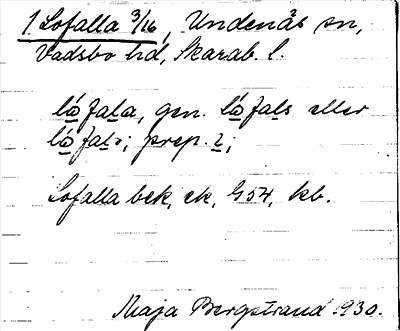 1 Lofalla 3/16, Undenäs sn,
Vadsbo hd, Skarab. l.
ló̱fa̱la, gen. ló̱fa̱ls eller
ló̱fa̱l; prep. i̱;
Lofalla bek, ek, G54, kb.
Maja Bergstrand 1930.